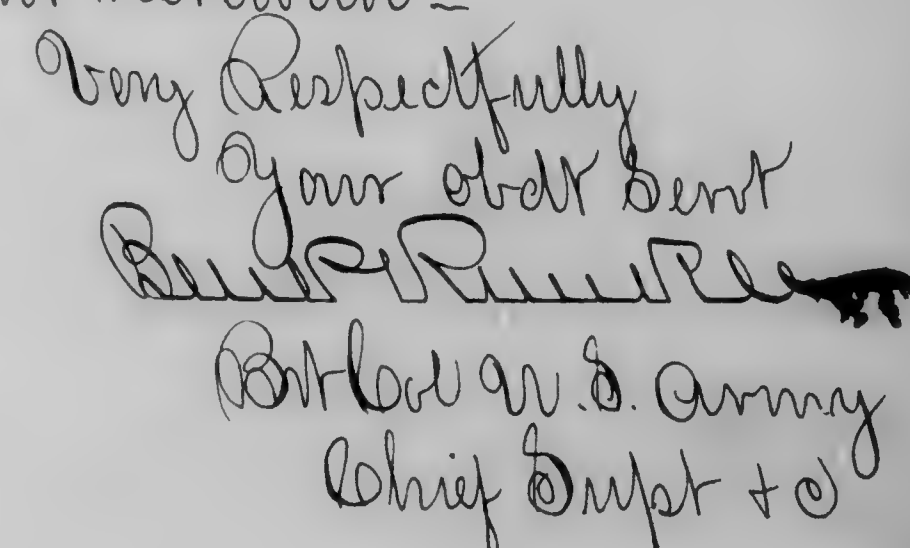 Very Respectfully
Your obdt Servt
Ben P Runkle
Bvt Col U.S. Army
Chief Supt + c